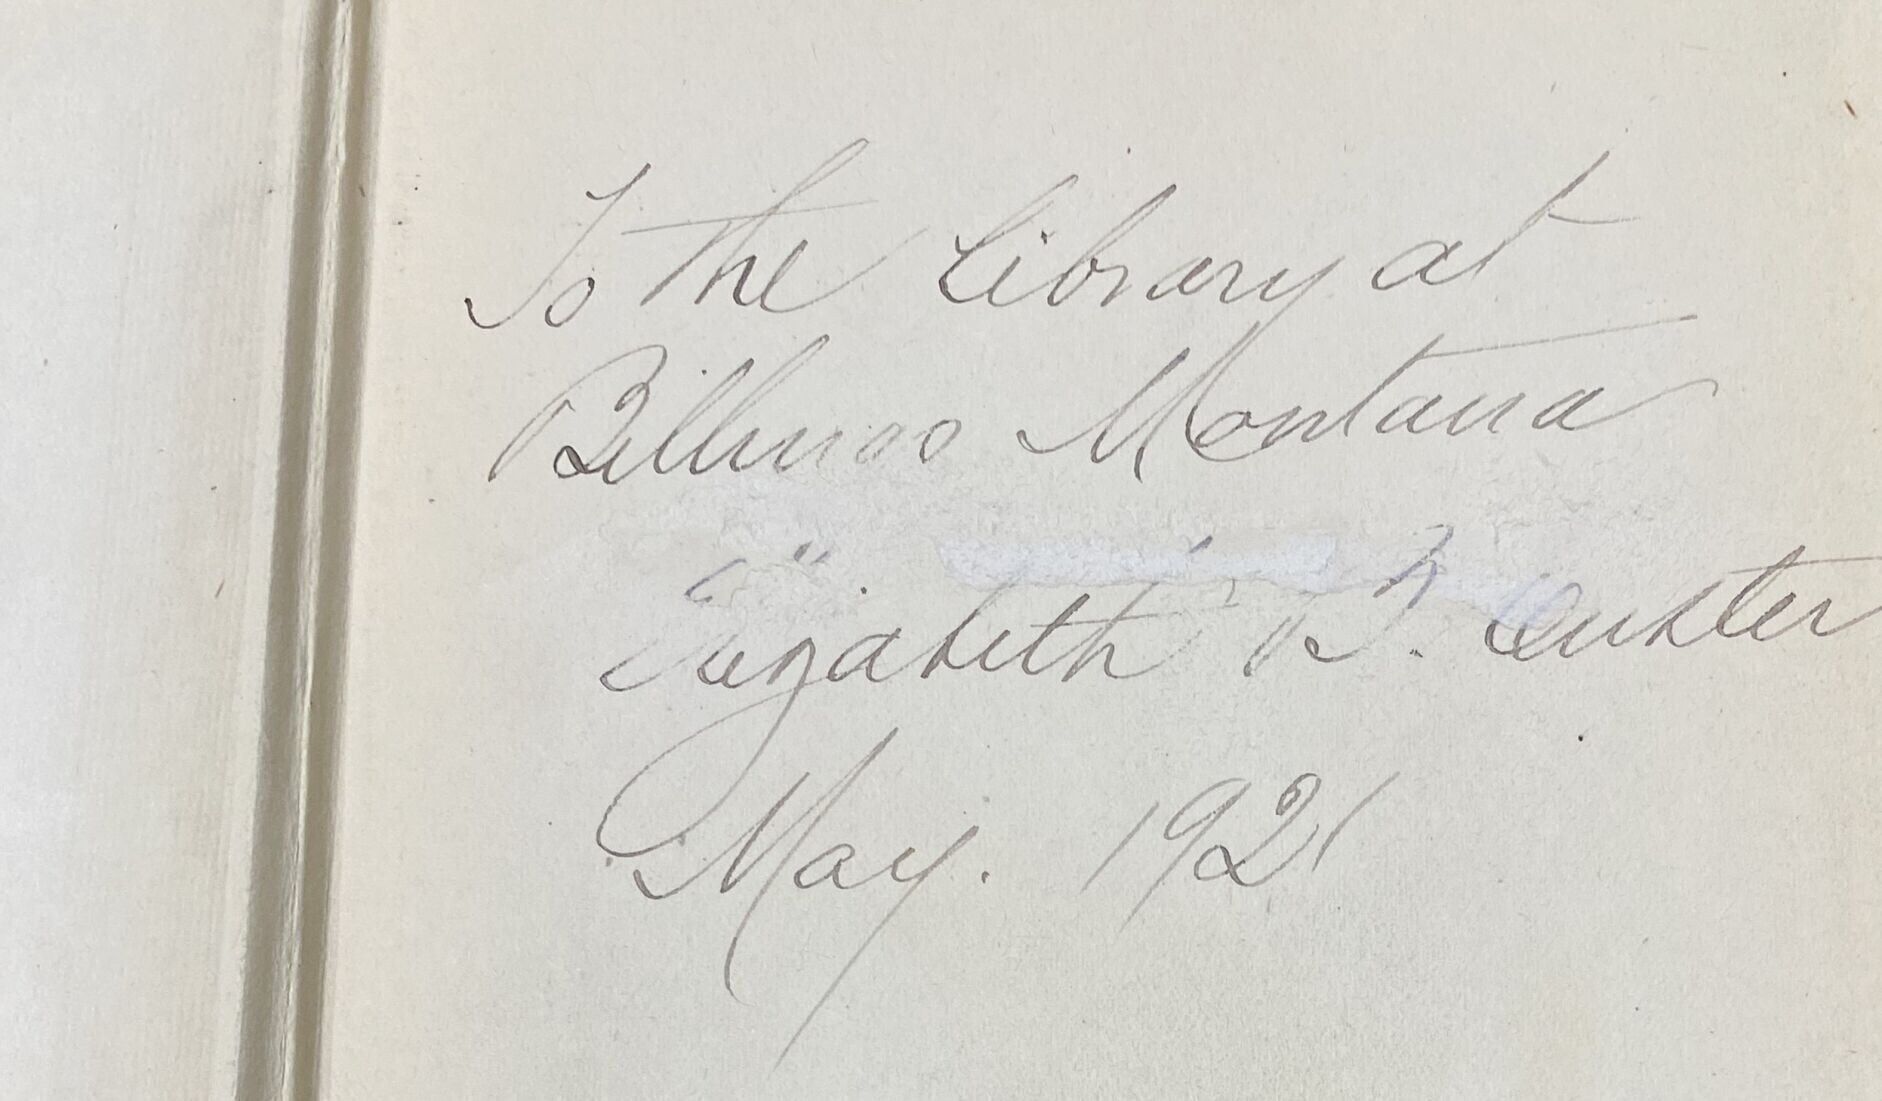 To the Library at
Billings Montana
Elizabeth B. Custer
May. 1921